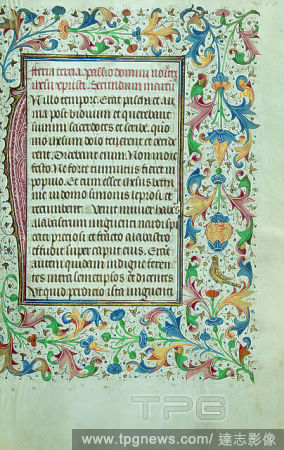 feria tercia. passio domini nostri
ihesu xpristi. Secundum marcu
N illo tempore. Erat pascha et azi
ma post biduum et querebant
summi sacerdotes et scribe. quo
modo ihesum dolo tenerent et occide
rent. Dicebant enim. Non in die
festo. Ne forte tumultus fieret in
populo. Et cum esset ihesus betha
nie in domo simonis leprosi. et
recumbent Venit mulier habens
alabastrum unguenti nardi spi
cati preciosi et fracto alabastro
effudit super caput eius. Erant
autem quidam indigne feren
tes intra semetipsos et dicentes
Ut quid perdicio ista unguent
TPG
www.tpgnews.com / 達志影像